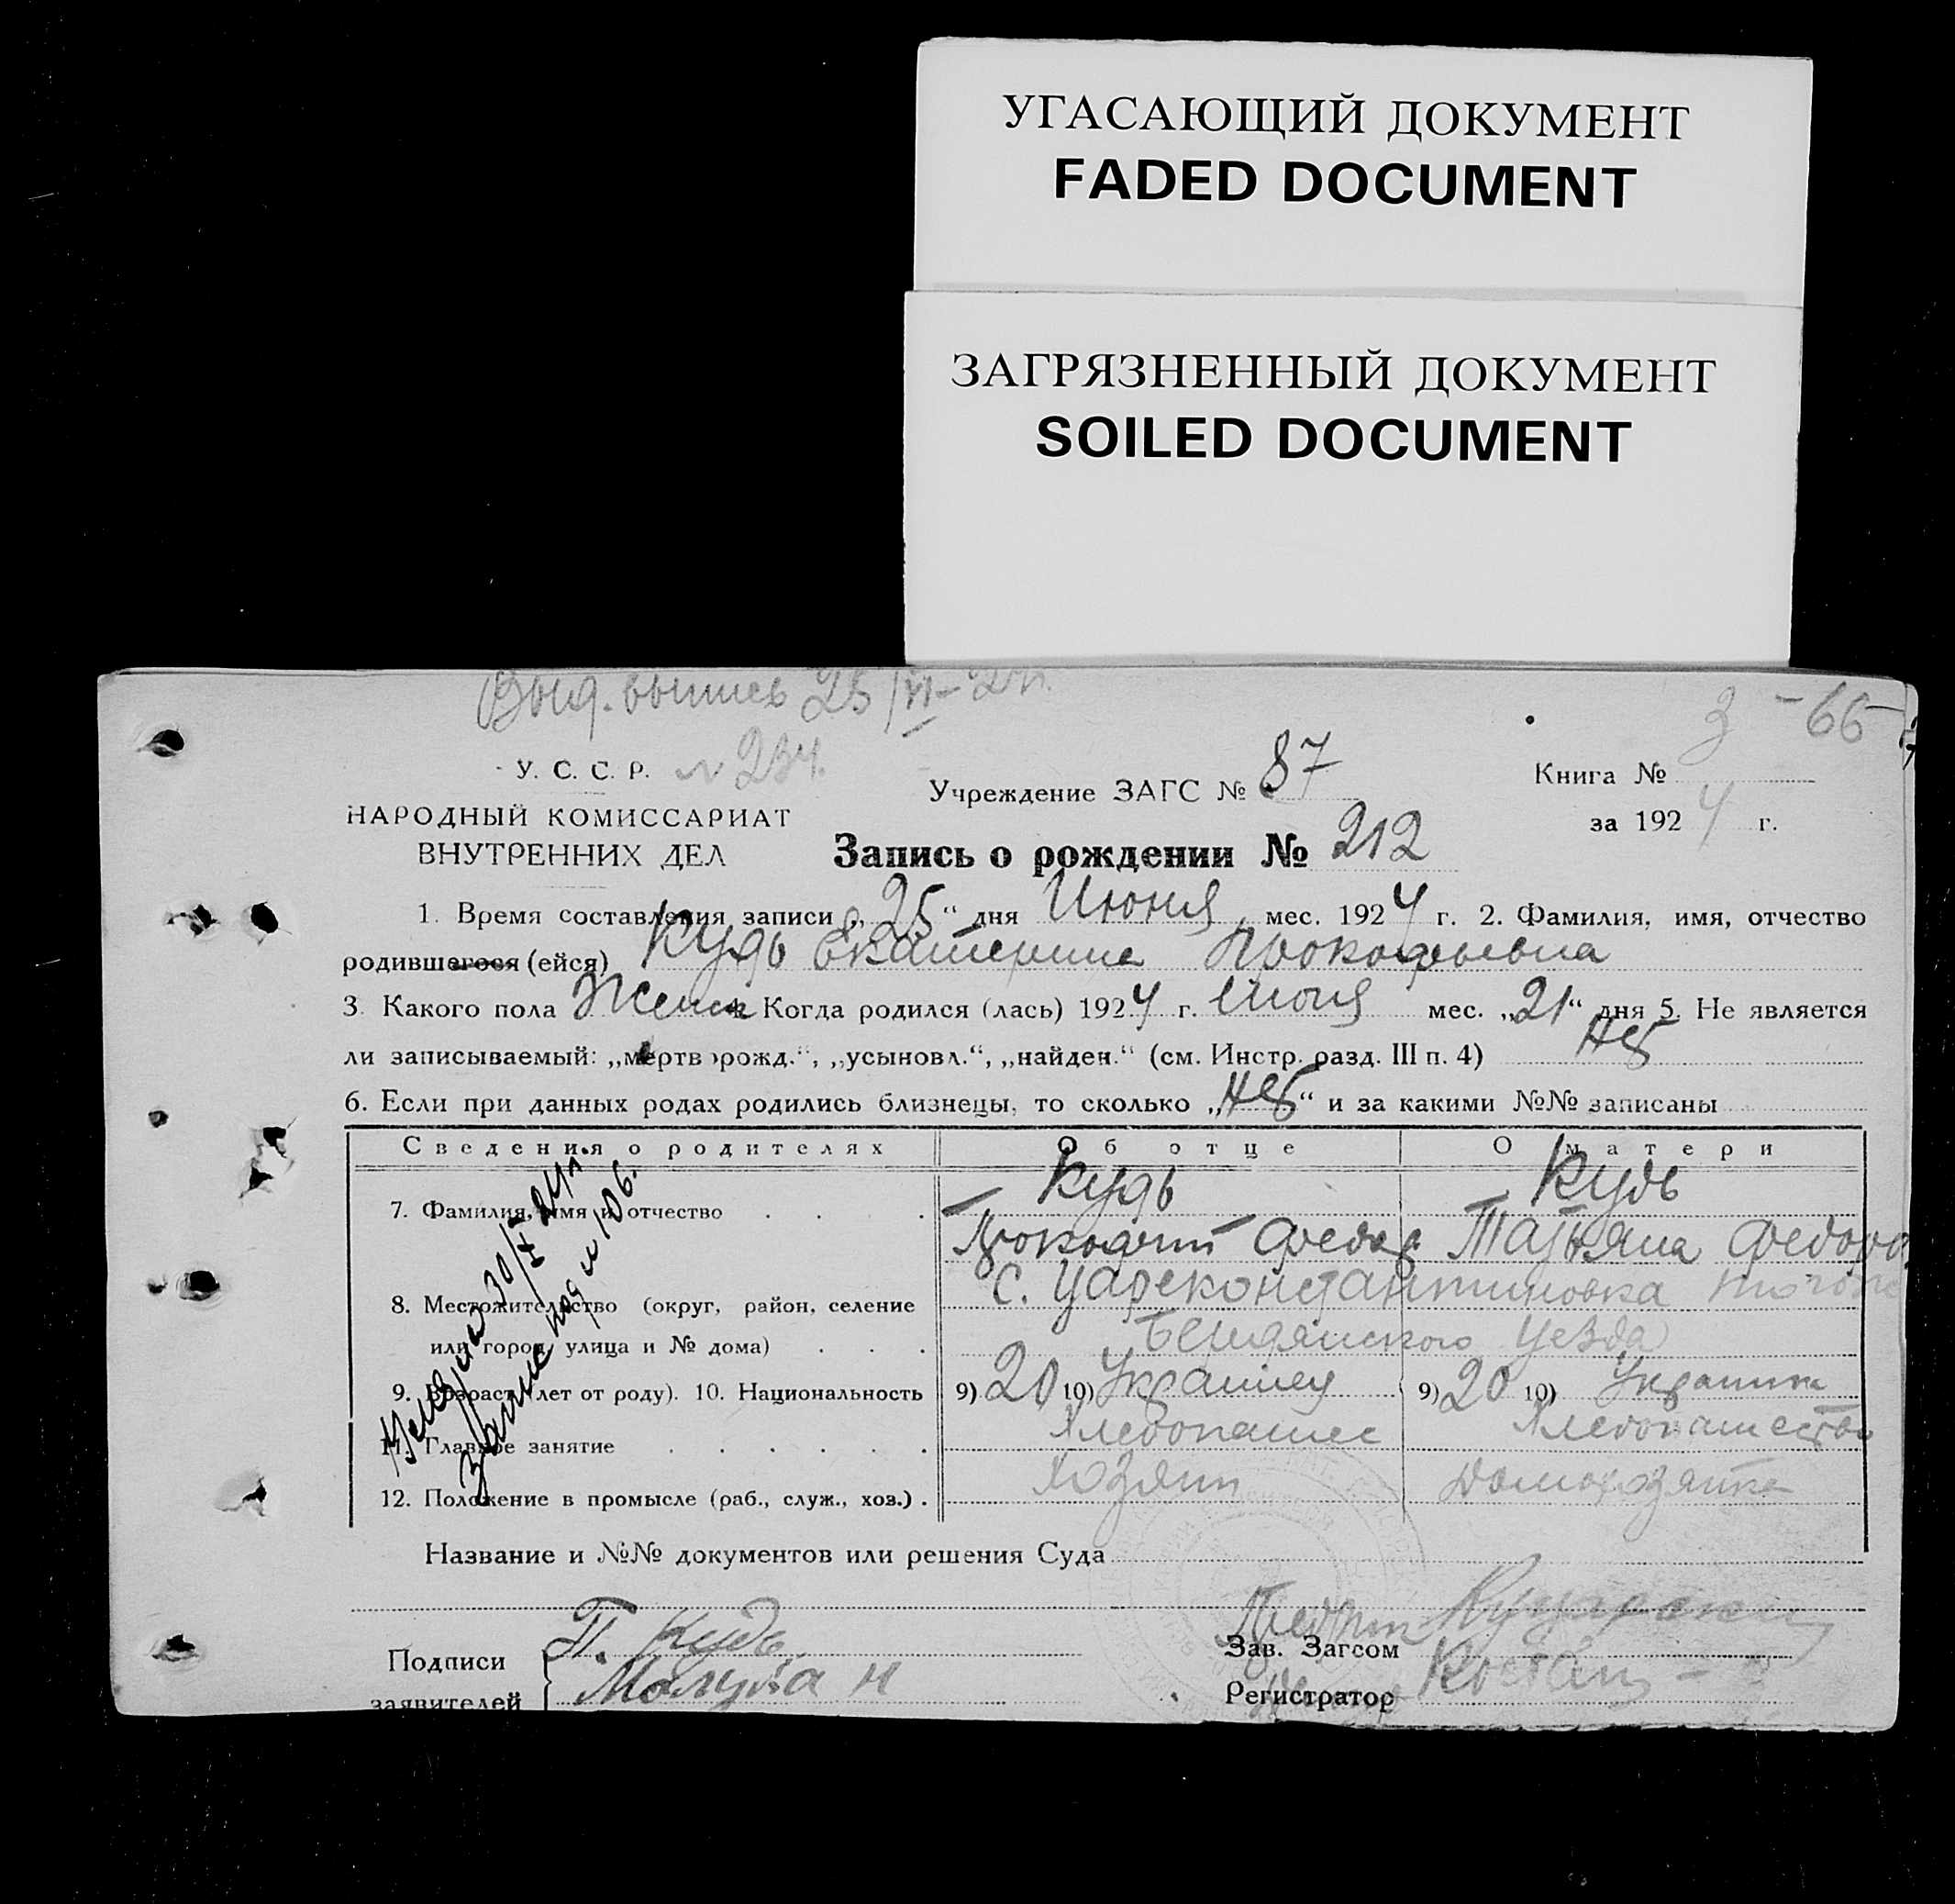 УГАСАЮЩИЙ ДОКУМЕНТ
FADED DOCUMENT
ЗАГРЯЗНЕННЫЙ ДОКУМЕНТ
SOILED DOCUMENT
Выд. выпись 25/VI-24г.
3 -66
У. С. С. Р. № 234.
Учреждение ЗАГС № 87
Книга №
НАРОДНЫЙ КОМИССАРИАТ
ВНУТРЕННИХ ДЕЛ
за 1924 г.
Запись о рождении № 212
1. Время составления записи „25“ дня Июня мес. 1924 г. 2. Фамилия, имя, отчество
родившегося (ейся) Кудь Екатерина Прокофьевна
3. Какого пола Женск 4. Когда родился (лась) 1924 г. Июня мес. „21“ дня 5. Не является
ли записываемый: „мертворожд.“, „усыновл.“, „найден.“ (см. Инстр. разд. III п. 4) Нет
6. Если при данных родах родились близнецы, то сколько „Нет“ и за какими №№ записаны
Сведения о родителях Об отце О матери
Кудь Кудь
7. Фамилия, имя и отчество
Прокофий Федор Татьяна Федоро
8. Местожительство (округ, район, селение С. Цареконстантиновка
или город, улица и № дома) Бердянского уезда
9. Возраст (лет от роду). 10. Национальность 9) 20 10) Украинец 9) 20 10) Украинка
11. Главное занятие Хлебопашес Хлебопашество
12. Положение в промысле (раб., служ., хоз.) Хозяин Домохозяйка
Название и №№ документов или решения Суда
Подписи П. Кудь
Зав. Загсом
заявителей
Регистратор